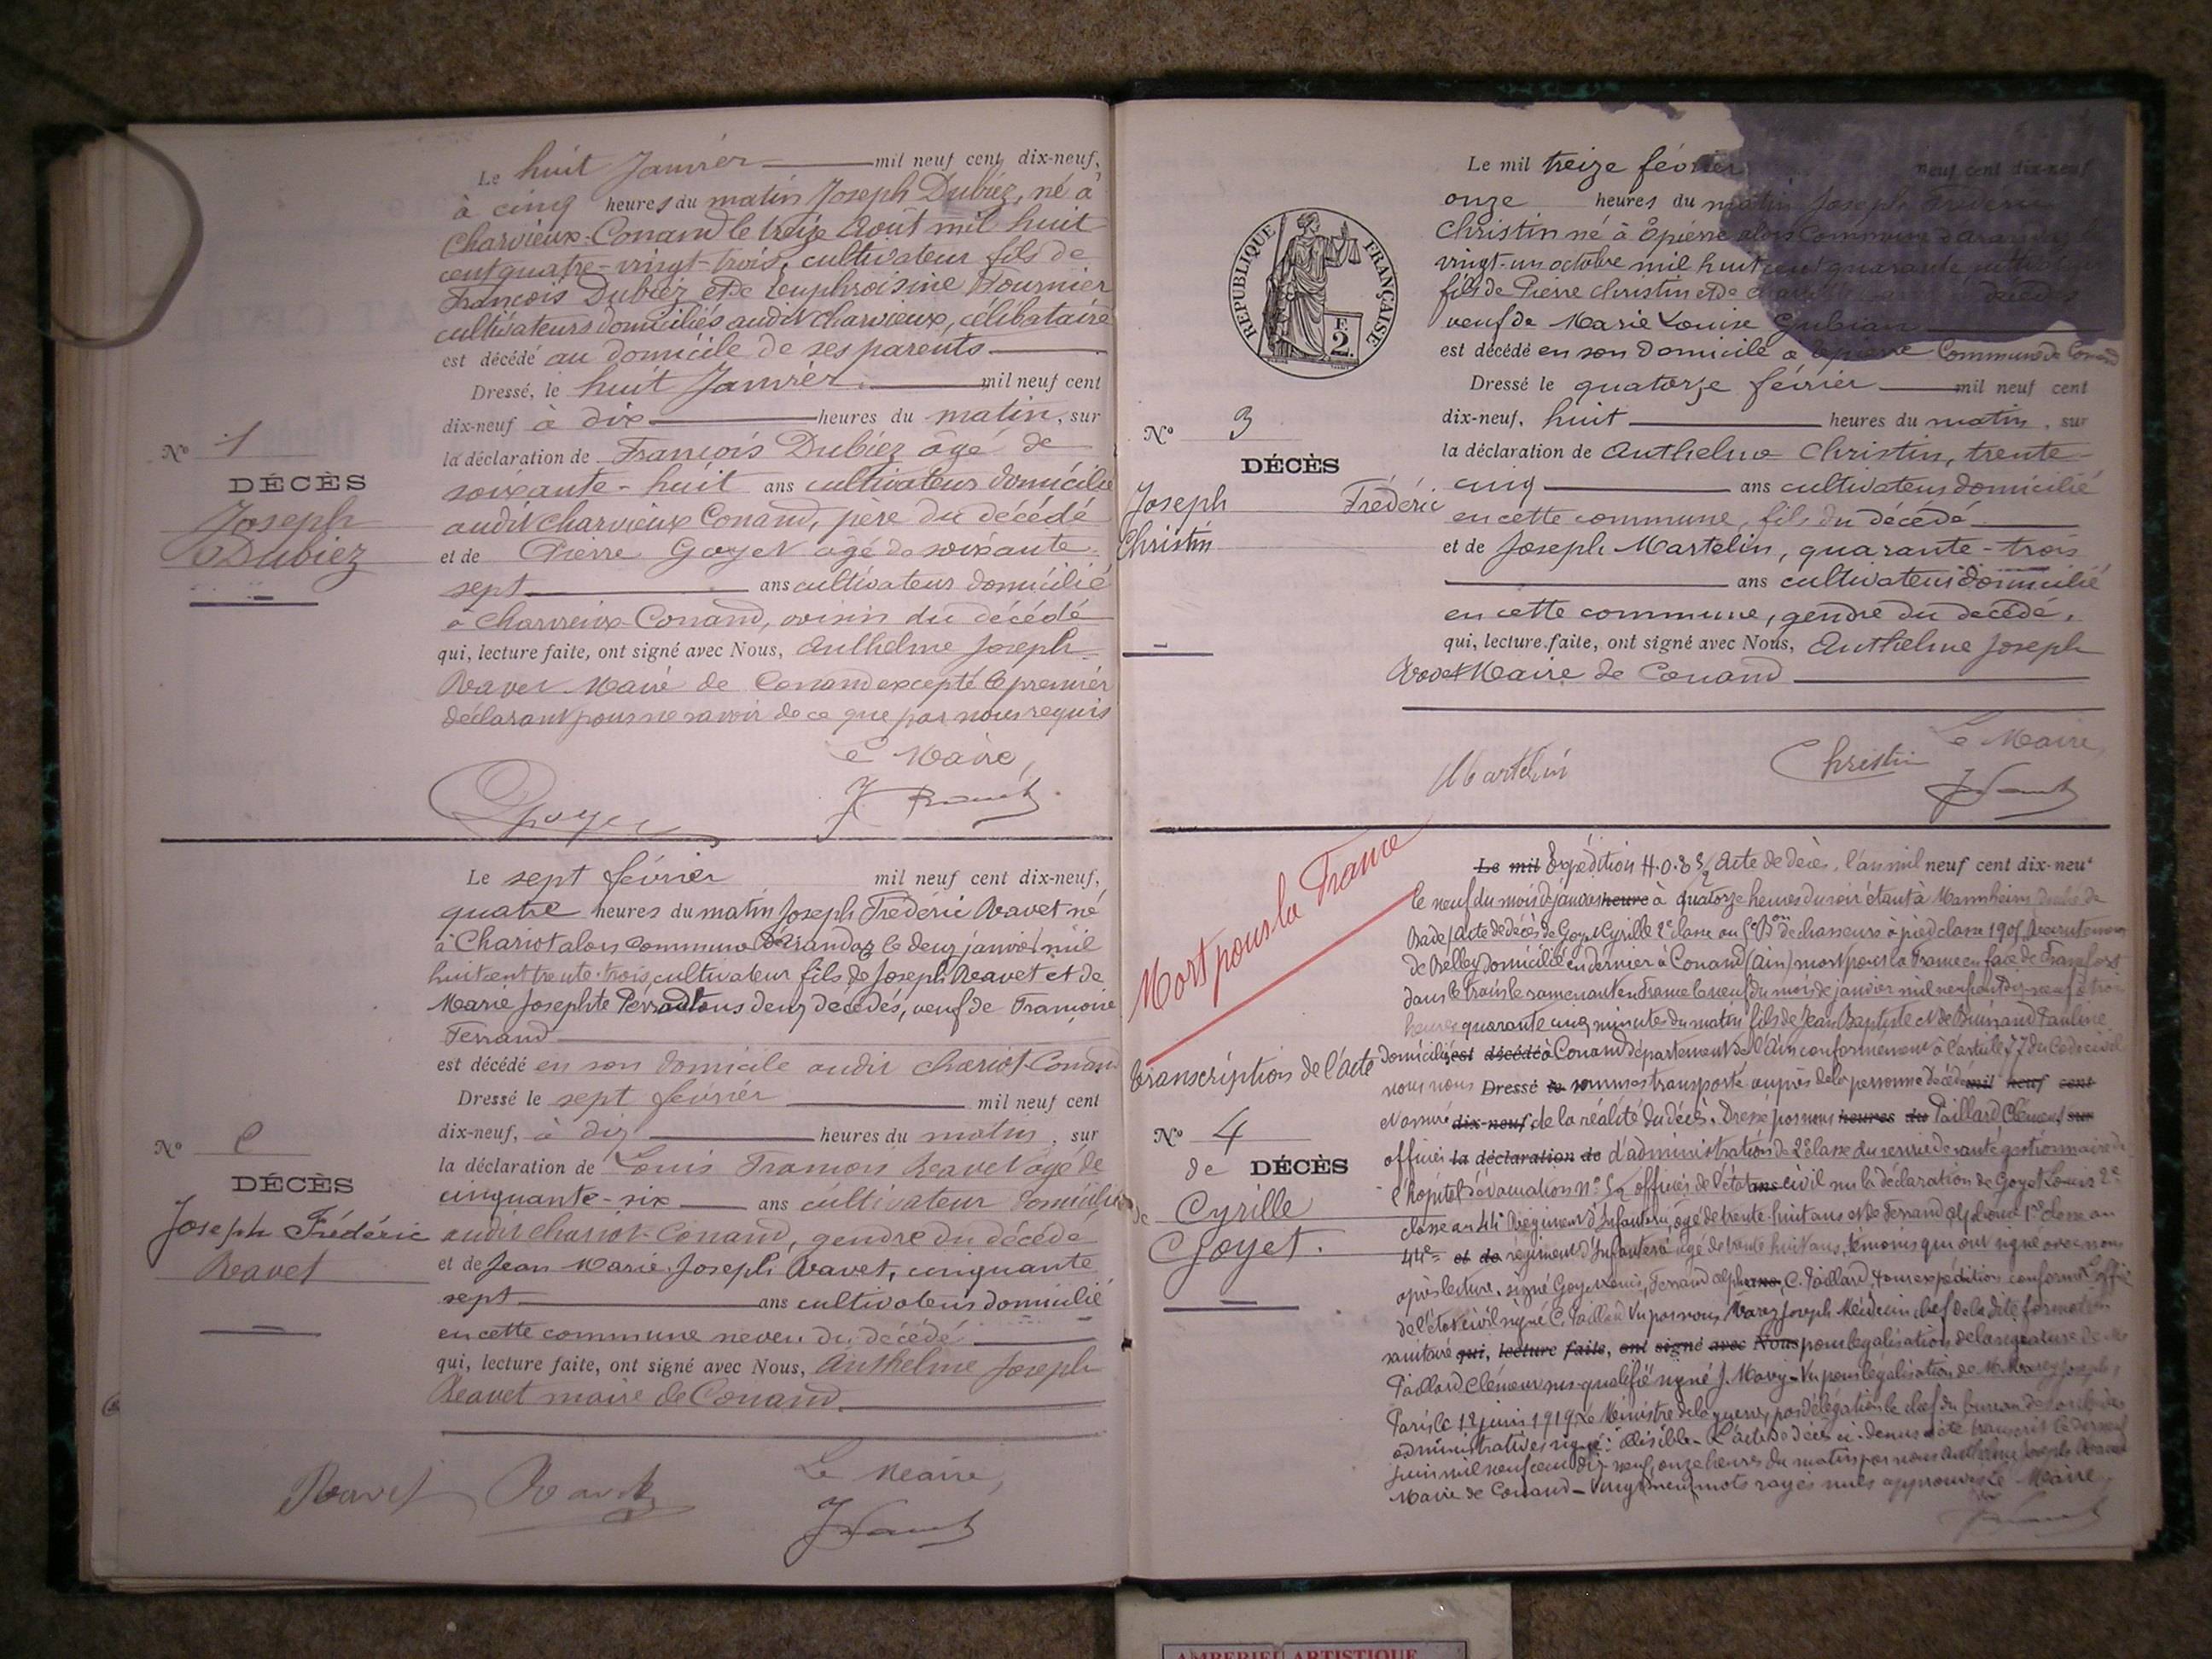 Le huit Janvier mil neuf cent dix-neuf,
à cinq heures du matin Joseph Dubiez, né à
Charvieux-Conand le treize Août mil huit
cent quatre-vingt-trois, cultivateur fils de
François Dubiez et de Euphroisine Fournier
cultivateurs domiciliés audit Charvieux, célibataire
est décédé au domicile de ses parents
Dressé, le huit Janvier mil neuf cent
dix-neuf à dix heures du matin, sur
la déclaration de François Dubiez agé de
soixante-huit ans cultivateur domicilié
audit Charvieux Conand, père du décédé
et de Pierre Goyet agé de soixante
sept ans cultivateur domicilié
à Charvieux-Conand, voisin du décédé
qui, lecture faite, ont signé avec Nous, Anthelme Joseph
Ravet Maire de Conand excepté le premier
déclarant pour ne savoir de ce que par nous requis
Le Maire,
Goyet
J Ravet
No 1
DÉCÈS
Joseph
Dubiez
Le sept février mil neuf cent dix-neuf,
quatre heures du matin Joseph Frédéric Ravet né
à Chariot alors commune d'Arandaz le deux janvier mil
huit cent trente-trois, cultivateur fils de Joseph Ravet et de
Marie Josephte Perraud tous deux décédés, veuf de Françoise
Ferrand
est décédé en son domicile audit Chariot-Conand
Dressé le sept février mil neuf cent
dix-neuf, à dix heures du matin, sur
la déclaration de Louis François Ravet agé de
cinquante-six ans cultivateur domicilié
audit Chariot-Conand, gendre du décédé
et de Jean Marie Joseph Ravet, cinquante
sept ans cultivateur domicilié
en cette commune neveu du décédé
qui, lecture faite, ont signé avec Nous, Anthelme Joseph
Ravet maire de Conand
Ravet Ravet Le Maire,
J Ravet
No 2
DÉCÈS
Joseph Frédéric
Ravet
RÉPUBLIQUE FRANÇAISE
F.
2.
Le mil treize février neuf cent dix-neuf
onze heures du matin Joseph Frédéric
Christin né à Épierre alors Commune d'Arandaz
vingt-un octobre mil huit cent quarante
fils de Pierre Christin et de décédés
veuf de Marie Louise Gubian
est décédé en son domicile a Epierre Commune de Conand
Dressé le quatorze février mil neuf cent
dix-neuf, huit heures du matin, sur
la déclaration de Anthelme Christin, trente-
cinq ans cultivateur domicilié
en cette commune, fils du décédé
et de Joseph Martelin, quarante-trois
ans cultivateur domicilié
en cette commune, gendre du décédé,
qui, lecture faite, ont signé avec Nous, Anthelme Joseph
Ravet Maire de Conand
Le Maire,
Martelin Christin
J Ravet
No 3
DÉCÈS
Joseph Frédéric
Christin
Mort pour la France
transcription de l'acte
No 4
de DÉCÈS
de Cyrille
Goyet.
Le mil Expédition H.O.E 5/2 Acte de décès, l'an mil neuf cent dix-neuf
le neuf du mois de janvier heure à quatorze heures du soir étant à Mannheim duché de
Bade, Acte de décès de Goyet Cyrille 2e classe au Bon de chasseurs à pied classe 1905 recrutement
de Belley domicilié en dernier à Conand (ain) mort pour la France en face de Francfort
dans le train le ramenant en France le neuf du mois de janvier mil neuf cent dix-neuf à trois
heures quarante cinq minutes du matin fils de Jean Baptiste et de Pauline
domiciliés est décédé à Conand département de l'Ain conformément à l'article 77 du Code civil
nous nous Dressé le sommes transporté auprès de la personne décédée mil neuf cent
et assuré dix-neuf de la réalité du décès. Dressé par nous heures du Paillard Clément sur
officier la déclaration de d'administration de 2e classe du service de santé gestionnaire de
l'hôpital d'évacuation no 5/2 officier de l'état ans civil sur la déclaration de Goyet Louis 2e
classe au 44e Régiment d'Infanterie, agé de trente-huit ans et de Ferrand 1re classe au
44e et de régiment d'Infanterie agé de trente huit ans, témoins qui ont signé avec nous
après lecture. signé Goyet Louis, Ferrand, C. Paillard, Pour expédition conforme l'officier
de l'état civil signé C. Paillard Vu par nous Marey Joseph Médecin chef de la dite formation
sanitaire qui, lecture faite, ont signé avec Nous pour légalisation de la signature de Mr
Paillard Clément sus-qualifié signé J. Marey - Vu pour légalisation de M. Marey Joseph,
Paris le 12 juin 1919, Le Ministre de la guerre, par délégation le chef du bureau des archives
administratives signé: illisible - L'acte de décès ci-dessus a été transcrit le
juin mil neuf cent dix neuf, onze heures du matin par nous Anthelme Joseph Ravet
Maire de Conand - Vingt neuf mots rayés nuls approuvés Le Maire,
AMBERIEU ARTISTIQUE